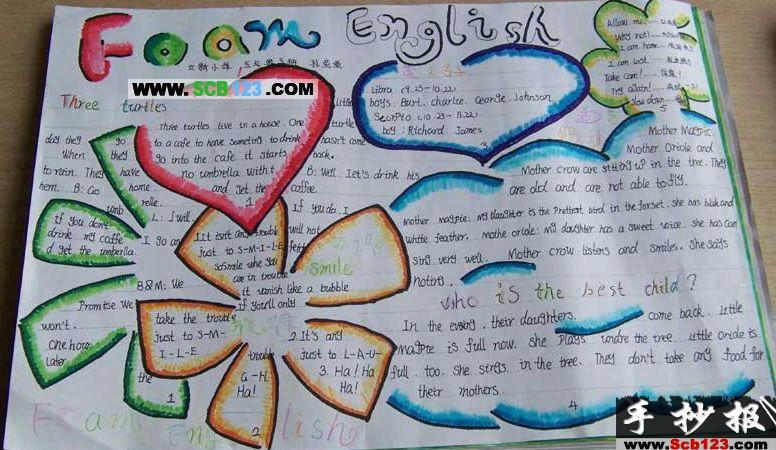 Foam English
WWW.SCB123.COM
Three turtles
Three turtles live in a house. One
little
turtle
to a cafe to have someting to drink
hasn't come
day they go
go into the cafe it starts
back.
When they
to rain. They have
no umbrella with t
B: Well. Let's drink his
hem. B: Go home
and get the
coffee.
umb
relle.
1
L: I will
If you don't
drink my caffe
d get the umbrella.
I go an
If you do. I
will not
B&M: We
Promise We
won't.
One hour
later
the
1
1 It isn't any trouble
just to S-M-I-L-E
So smile whe you
are in trouble
it vanish like a bubble.
If you'll only
smile
take the trouble
just to S-M-
I-L-E
trouble
G-H
Ha!
2
2. It's any
just to L-A-U-
3. Ha! Ha
Ha!
Libra (9.23-10.22)
boys: Bart. charlie. George. Johnson
Scorpio (10.23-11.22)
boy: Richard James
3
Allow me.
Why not!
I am home.
I am lost.
Take care!
Try again!
Slow down
5
Mother Magpie.
Mother Oriole and
Mother crow are sitting up in the tree. They
are old and are not able to fly.
Mother magpie: my daughter is the Prettest bird in the forset. she has blak and
white feather. mothe oriole: My daughter has a sweet voice. she has can
sing very well. Mother crow listens and smiles. She says
noting.
who is the best child?
In the evsing. their daughters. come back. Little
magpie is full now. she Plays undre the tree. Little oriole is
full. too. She strgs in the tree. They don't take any food for
their mothers.
4
Foam English
手抄报
www.Scb123.com